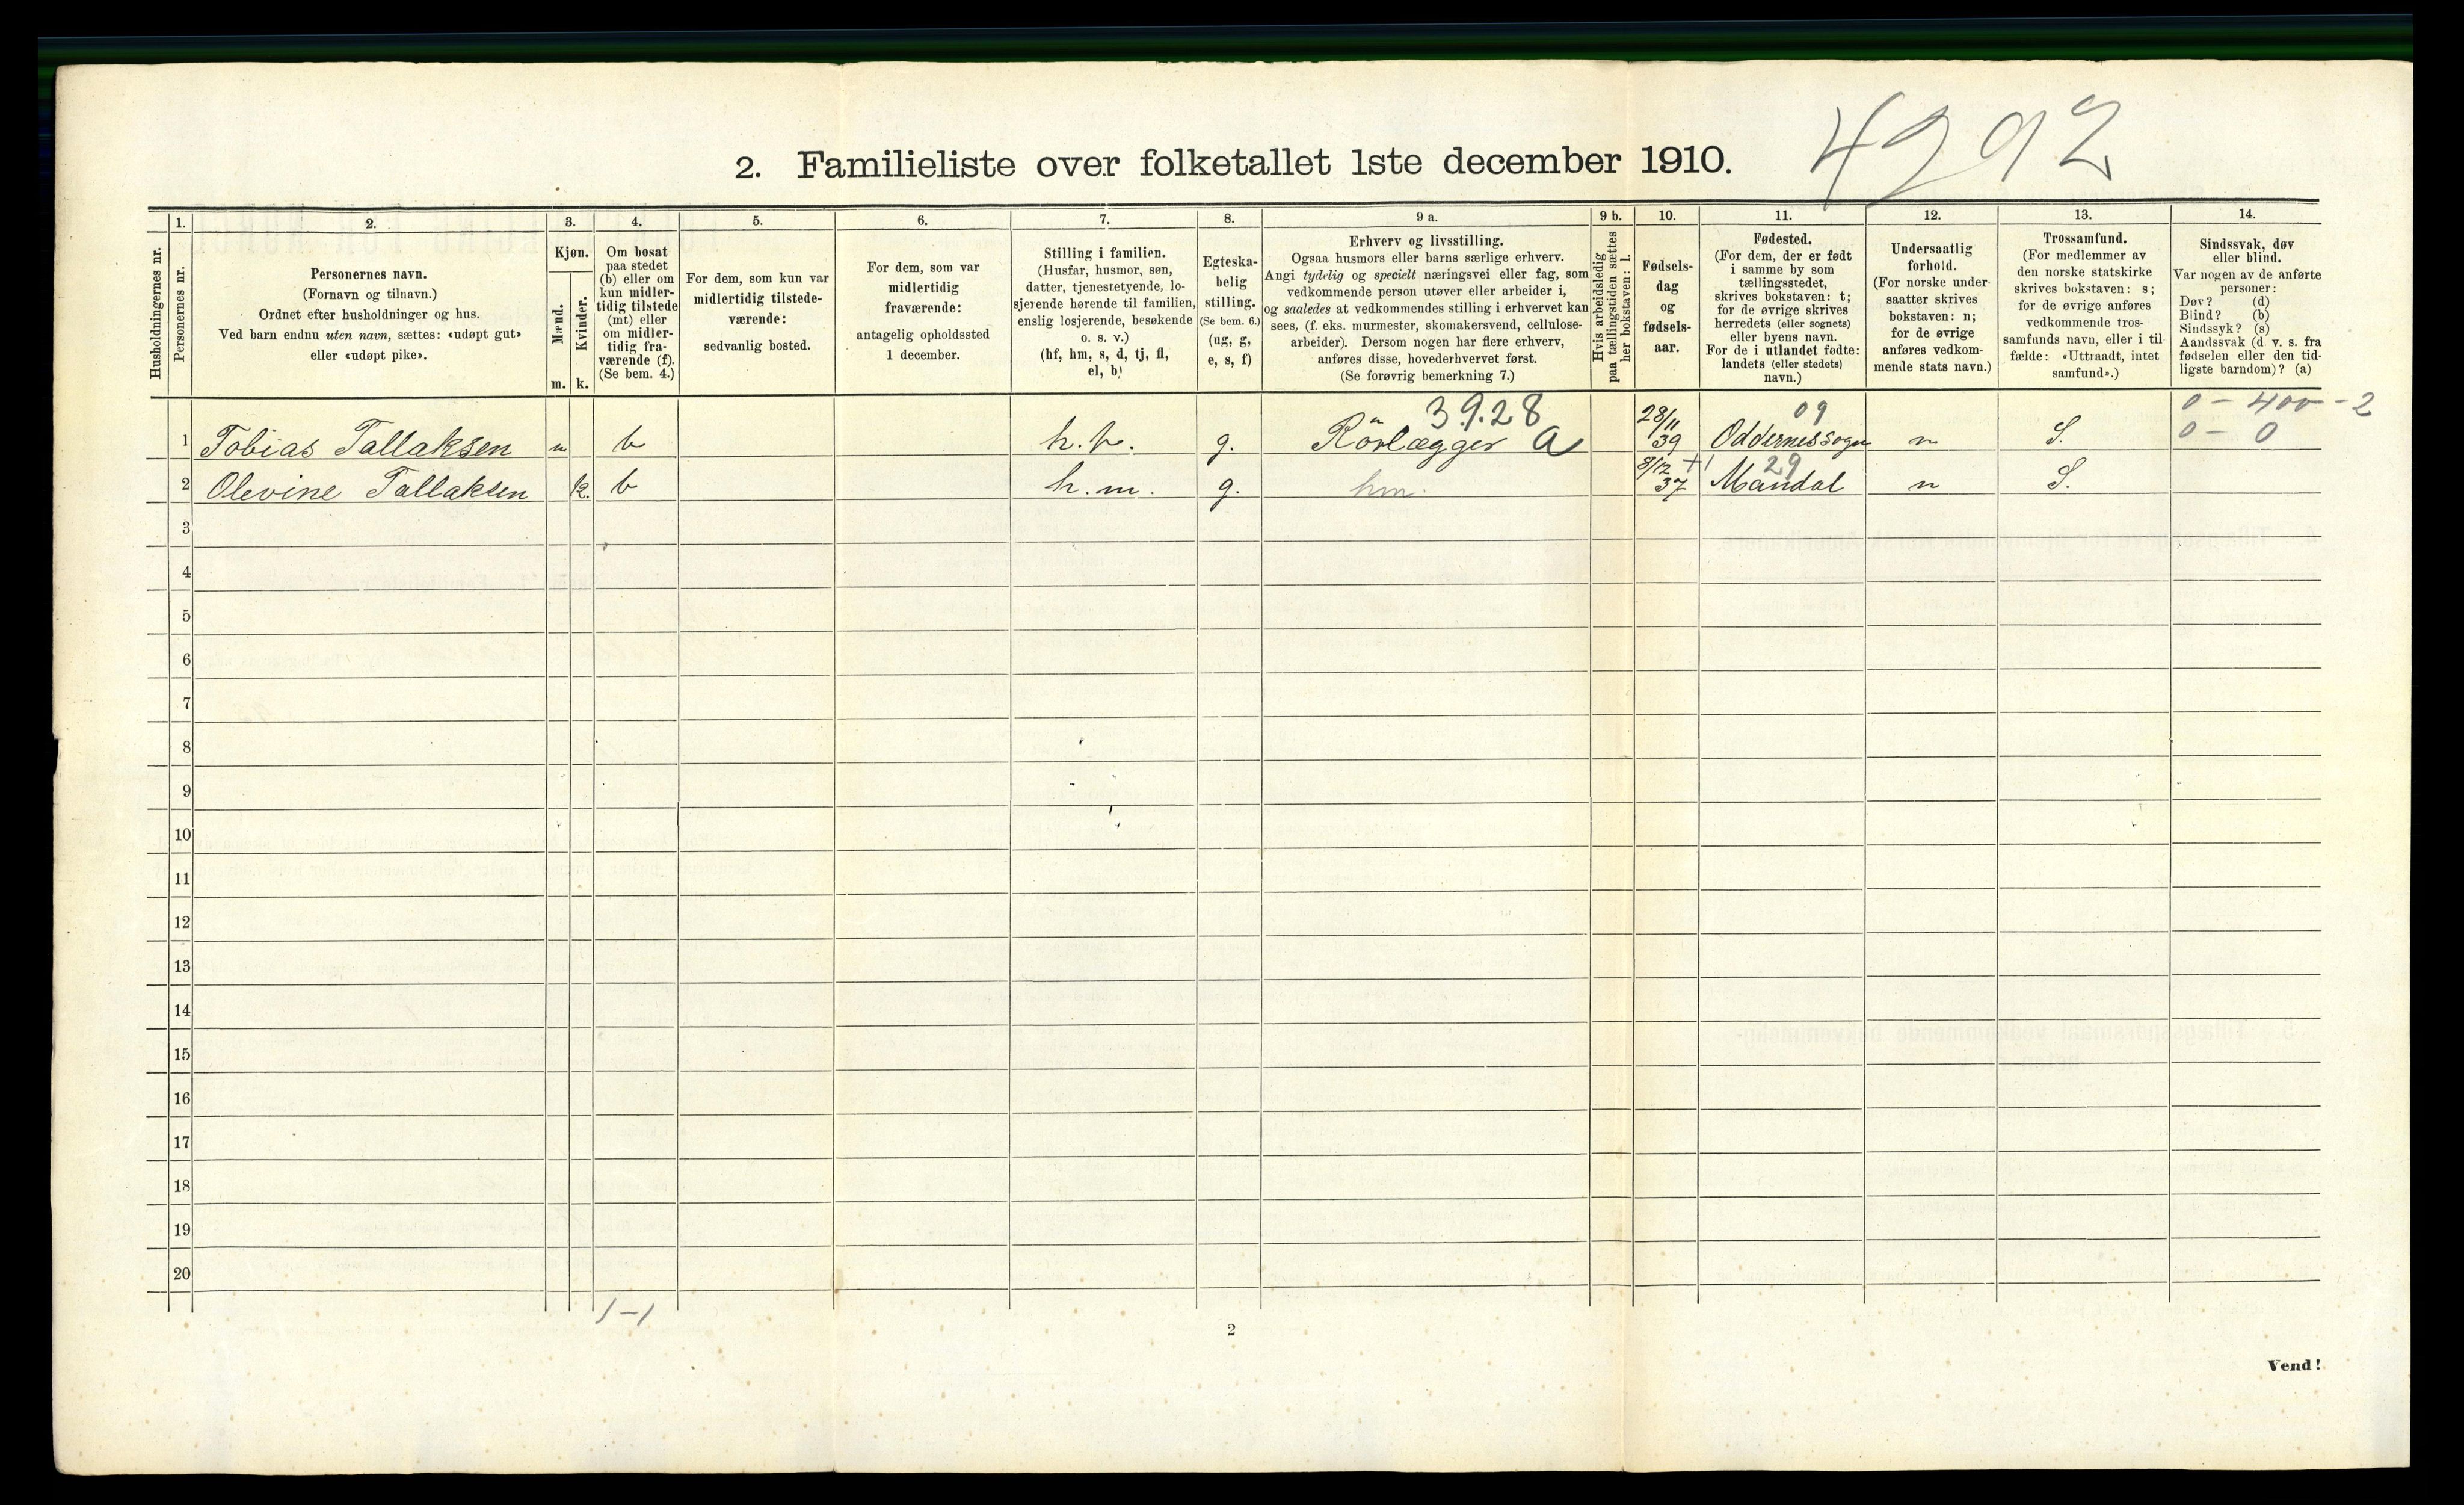 4292
2. Familieliste over folketallet 1ste december 1910.
Husholdningernes nr.
1.
Personernes nr.
2.
Personernes navn.
(Fornavn og tilnavn.)
Ordnet efter husholdninger og hus.
Ved barn endnu uten navn, sættes: «udøpt gut»
eller «udøpt pike».
3.
Kjøn.
Mænd.
Kvinder.
m. k.
4.
Om bosat
paa stedet
(b) eller om
kun midler-
tidig tilstede
(mt) eller
om midler-
tidig fra-
værende (f).
(Se bem. 4.)
5.
For dem, som kun var
midlertidig tilstede-
værende:
sedvanlig bosted.
6.
For dem, som var
midlertidig
fraværende:
antagelig opholdssted
1 december.
7.
Stilling i familien.
(Husfar, husmor, søn,
datter, tjenestetyende, lo-
sjerende hørende til familien,
enslig losjerende, besøkende
o. s. v.)
(hf, hm, s, d, tj, fl,
el, b)
8.
Egteska-
belig
stilling.
(Se bem. 6.)
(ug, g,
e, s, f)
9 a.
Erhverv og livsstilling.
Ogsaa husmors eller barns særlige erhverv.
Angi tydelig og specielt næringsvei eller fag, som
vedkommende person utøver eller arbeider i,
og saaledes at vedkommendes stilling i erhvervet kan
sees, (f. eks. murmester, skomakersvend, cellulose-
arbeider). Dersom nogen har flere erhverv,
anføres disse, hovederhvervet først.
(Se forøvrig bemerkning 7.)
9 b.
Hvis arbeidsledig
paa tællingstiden sættes
her bokstaven: l.
10.
Fødsels-
dag
og
fødsels-
aar.
11.
Fødested.
(For dem, der er født
i samme by som
tællingsstedet,
skrives bokstaven: t;
for de øvrige skrives
herredets (eller sognets)
eller byens navn.
For de i utlandet fødte:
landets (eller stedets)
navn.)
12.
Undersaatlig
forhold.
(For norske under-
saatter skrives
bokstaven: n;
for de øvrige
anføres vedkom-
mende stats navn.)
13.
Trossamfund.
(For medlemmer av
den norske statskirke
skrives bokstaven: s;
for de øvrige anføres
vedkommende tros-
samfunds navn, eller i til-
fælde: «Uttraadt, intet
samfund».)
14.
Sindssvak, døv
eller blind.
Var nogen av de anførte
personer:
Døv? (d)
Blind? (b)
Sindssyk? (s)
Aandssvak (d. v. s. fra
fødselen eller den tid-
ligste barndom)? (a)
3928 28/11 09 0 - 400 - 2
1 Tobias Tallaksen m b h.f. g. Rörlægger a 39 Oddernessogn n S. 0 - 0
8/12 29
2 Olevine Tallaksen k. b h.m. g. hm. 37 Mandal n S.
3
4
5
6
7
8
9
10
11
12
13
14
15
16
17
18
19
20
1-1
2
Vend!